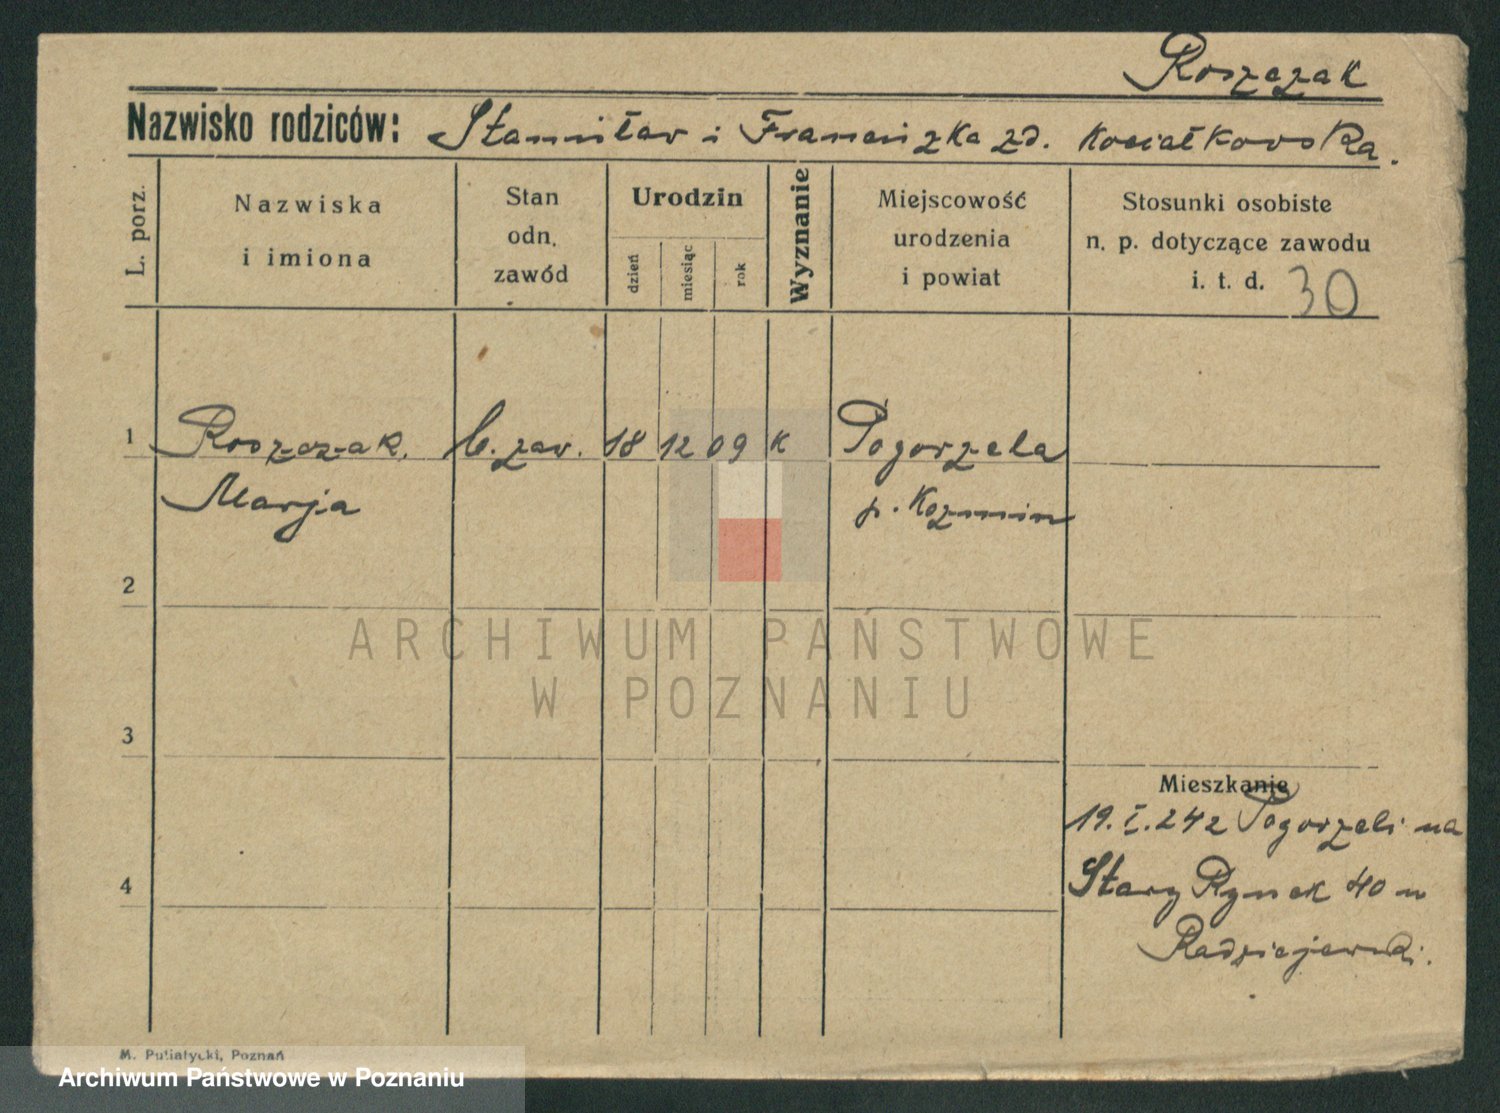 Roszczak
Nazwisko rodziców: Stanisław i Franciszka zd. Kociałkowska.
L. porz.
Nazwiska
i imiona
Stan
odn.
zawód
Urodzin
dzień
miesiąc
rok
Wyznanie
Miejscowość
urodzenia
i powiat
Stosunki osobiste
n. p. dotyczące zawodu
i. t. d. 30
1 Roszczak, b. zaw. 18 12 09 K Pogorzela
Marja p. Kozmin
2
3
4
Mieszkanie
19. I. 24 z Pogorzeli na
Stary Rynek 40 u
Radziejewski.
M. Putiatycki, Poznań
ARCHIWUM PAŃSTWOWE
W POZNANIU
Archiwum Państwowe w Poznaniu